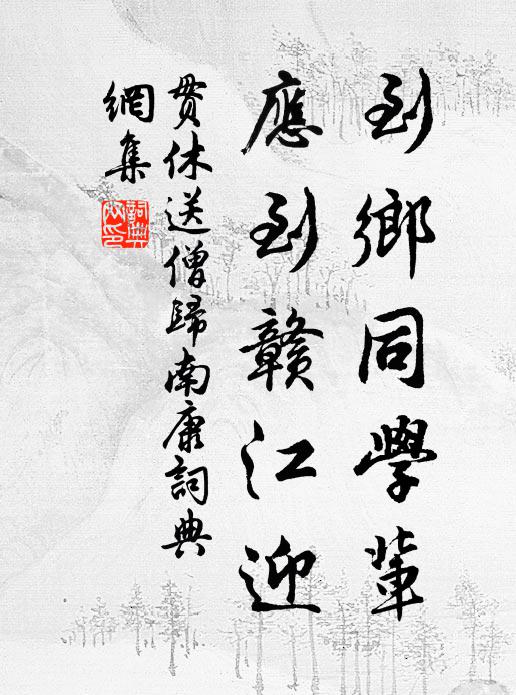 到鄉同學輩
應到贛江迎
贯休送僧歸南康詞典
網集
詞典網印